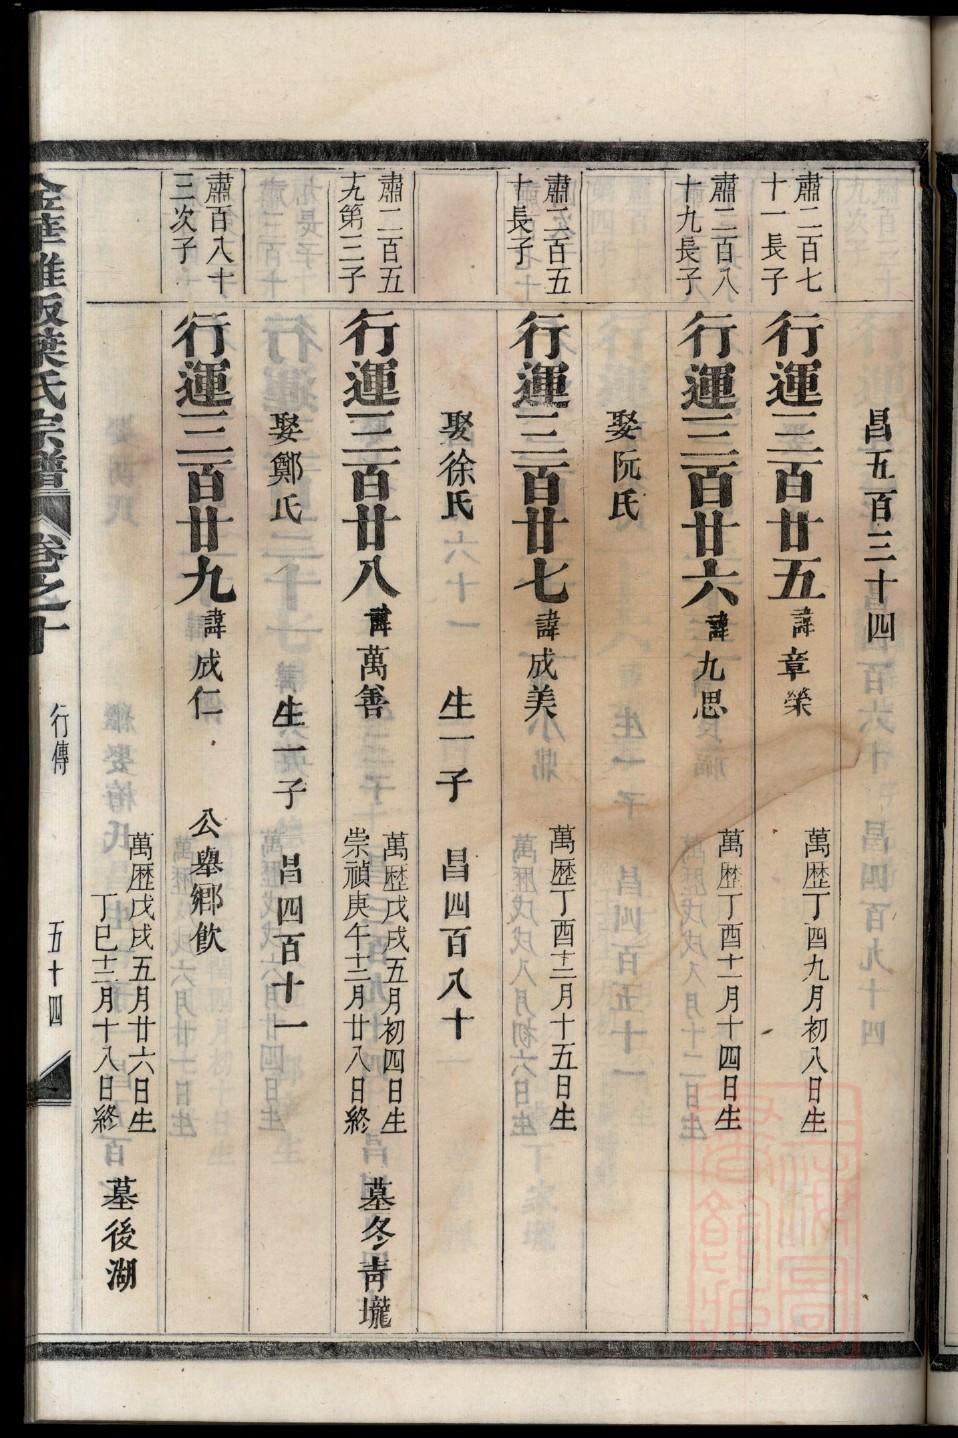 昌五百三十四
肅二百七
十一長子
行運三百廿五
諱章榮
萬歷丁酉九月初八日生
肅二百八
十九長子
行運三百廿六
諱九思
萬歷丁酉十一月十四日生
娶阮氏
肅二百五
十長子
行運三百廿七
諱成美
萬歷丁酉十二月十五日生
娶徐氏
生一子
昌四百八十
肅二百五
九第三子
行運三百廿八
諱萬善
萬歷戊戌五月初四日生
崇禎庚午十二月廿八日終
墓冬青壠
娶鄭氏
生一子
昌四百十一
肅百八十
三次子
行運三百廿九
諱成仁
公舉鄉飲
萬歷戊戌五月廿六日生
丁巳十二月十八日終
墓後湖
葉氏宗譜
卷之十
行傳
五十四